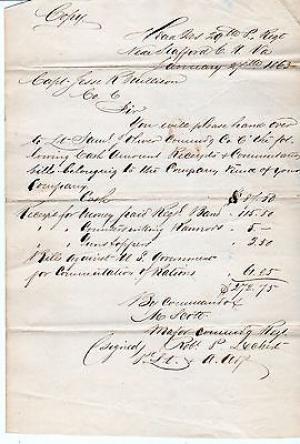 Copy
Head Qrs 29th P. Regt
Near Stafford C. H. Va
January 27th 1863
Capt. Jesse R. Millison
Co. C
Sir
You will please hand over
to Lt. Saml Oliver Commdg Co. C the fol-
lowing Cash Amount Receipts & Commutation
bills belonging to the Company Fund of your
Company
Cash
Receipt for money paid Regl Band " 115.50
" " Countersinking " 5 -
" " Gun Stoppers " 2.50
" Bills Against U. S. Government
for Commutation of Rations 61.25
$272.75
By Command of
M Scott
Major Commdg Regt
(Signed) Robt P.
1st Lt. & A. Adjt